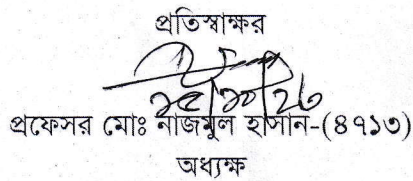 প্রতিস্বাক্ষর
২৫/১০/২৩
প্রফেসর মোঃ নাজমুল হাসান-(৪৭১৩)
অধ্যক্ষ